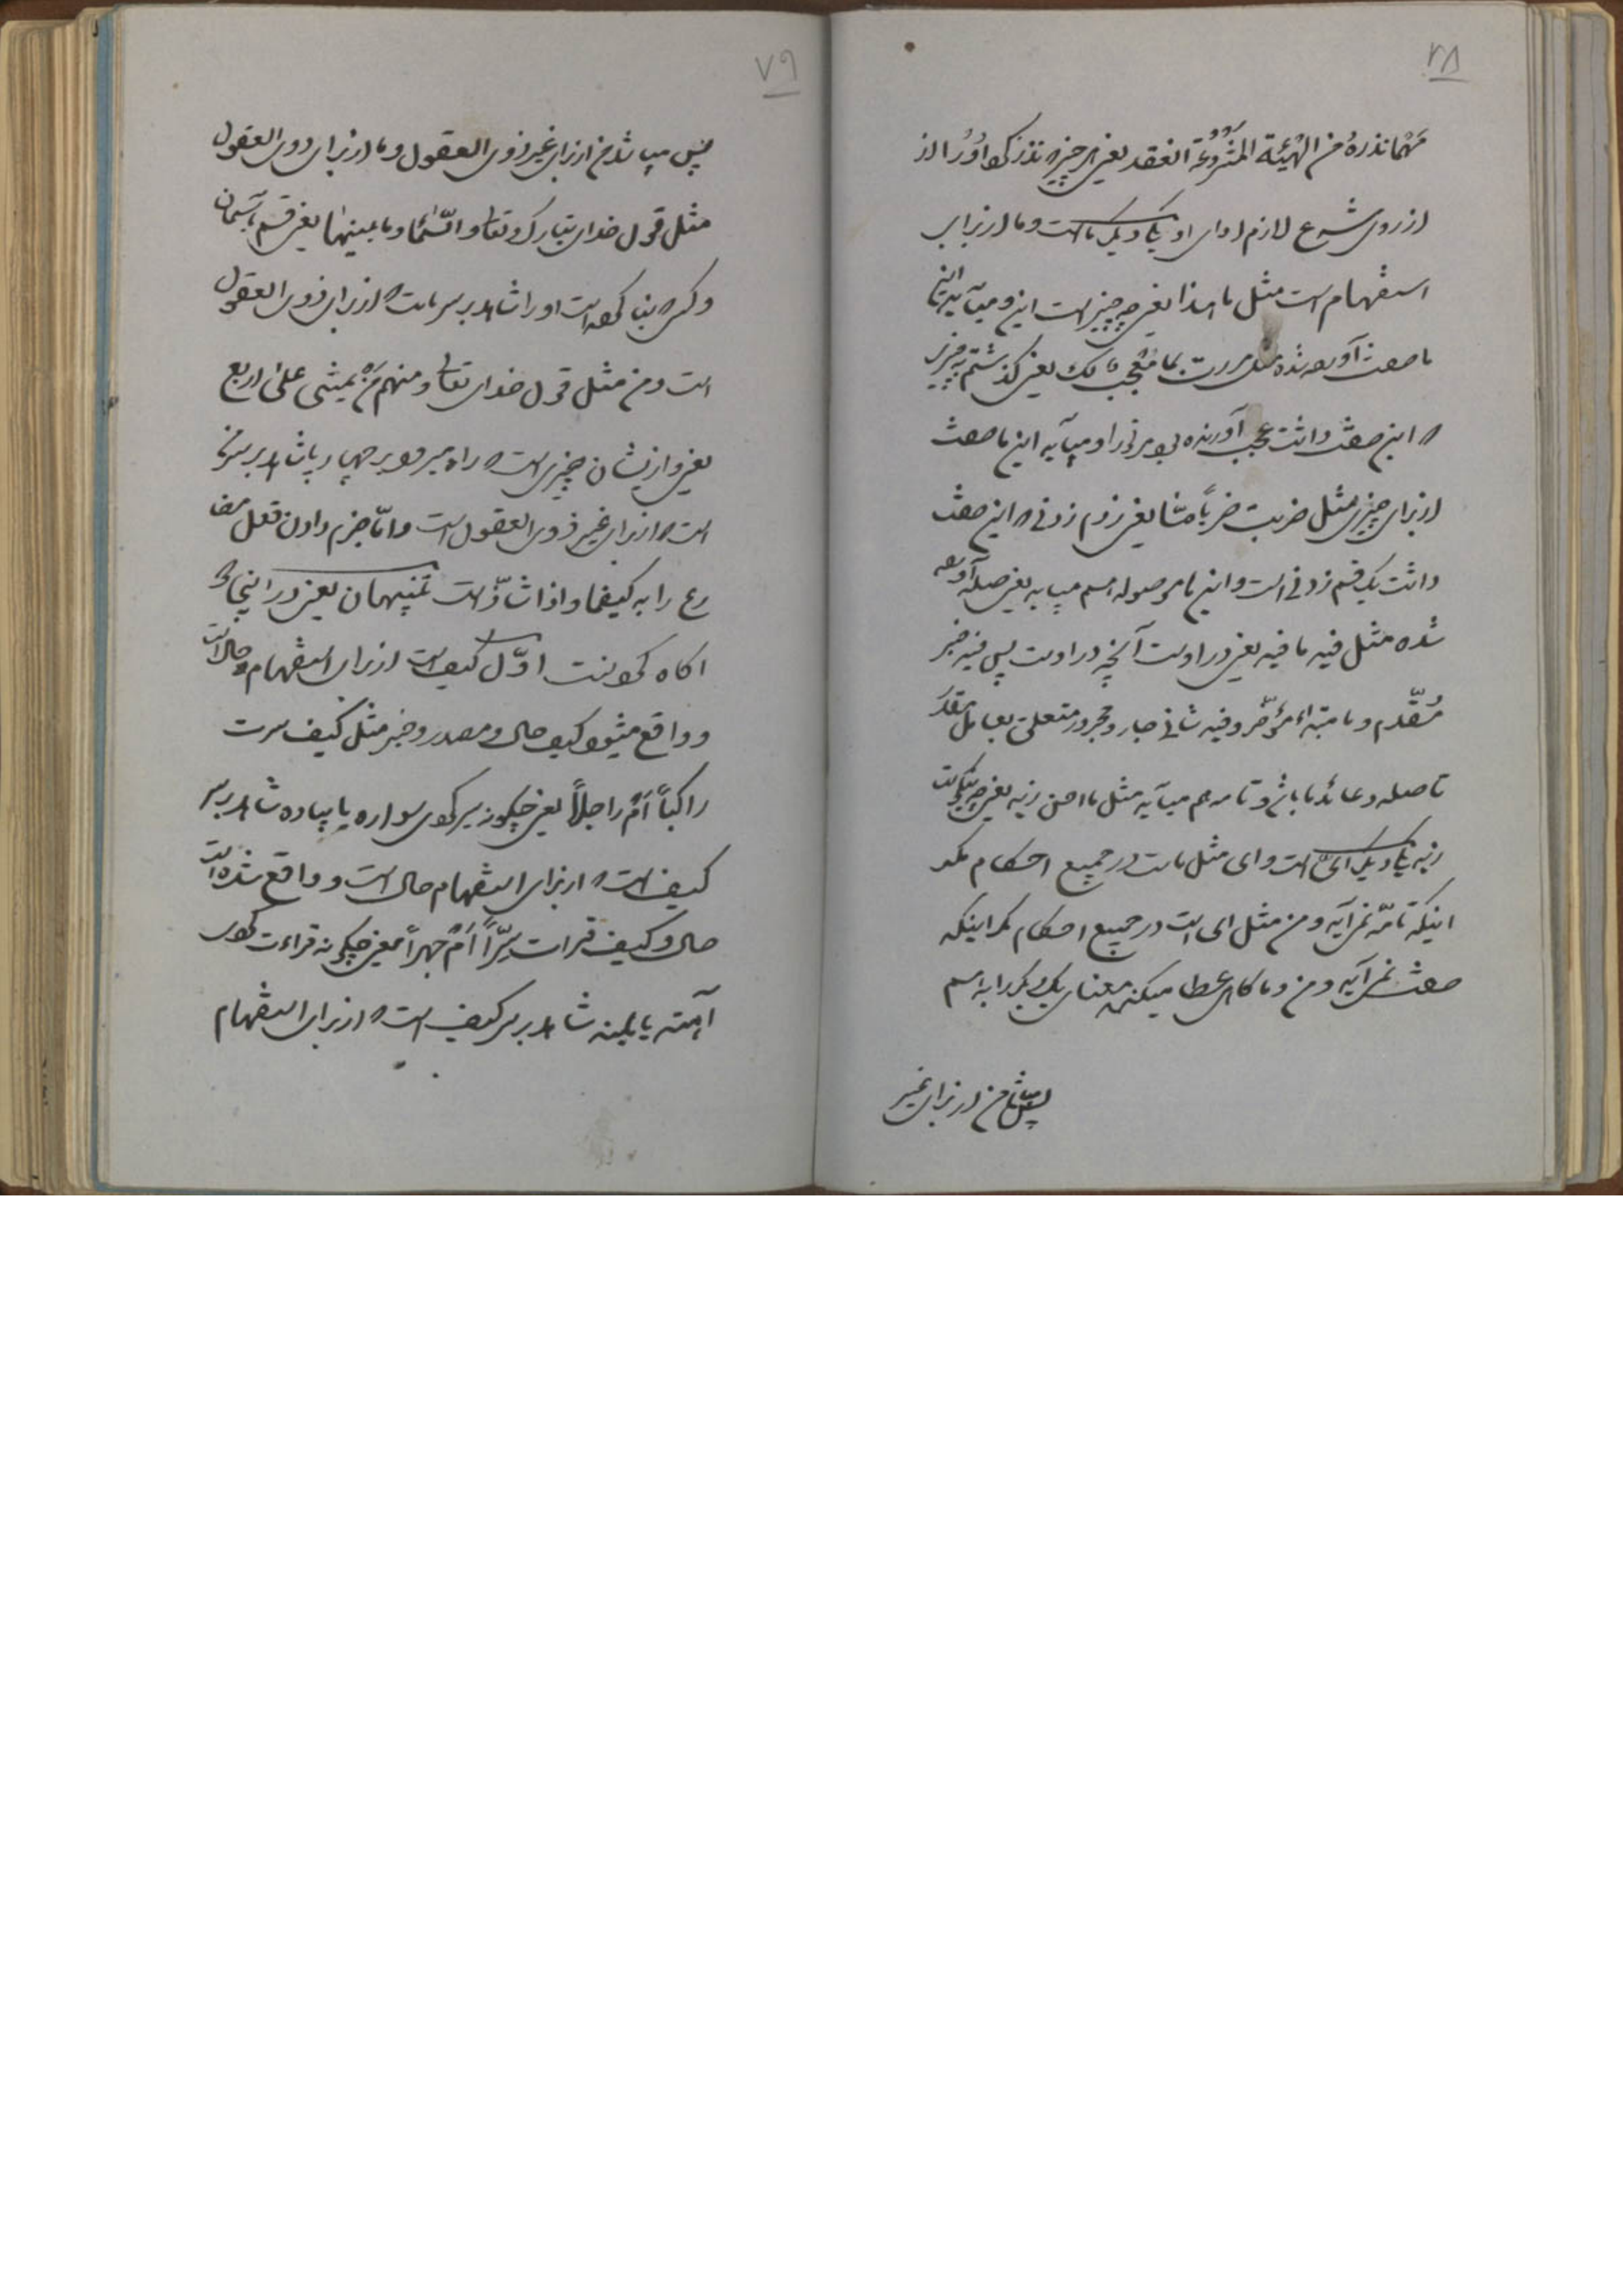 ۲۸
مَهْمَا نذرهُ من الهْیئة المَشْرُوعَة انعقد یعنی هر چیزی که نذر کرد او را از
از روی شرع لازم ادای او یکی دیگر ما است و ما از برای
استفهام است مثل ما هذا یعنی چه چیز است این و میآید این
ما صفت آورده شده مثل مررت بما مُعْجِبٍ لک یعنی گذشتم به چیزی
که این صفت داشت عجب آورنده بود مر تو را و میآید این ما صفت
از برای چیزی مثل ضربت ضرباً مّا یعنی زدم زدنی که این صفت
داشت یک قسم زدنی است و این ما موصوله هم میآید یعنی صله آورده
شده مثل فیه ما فیه یعنی در اوست آنچه در اوست پس فیه خبر
مُقّدم و ما مبتداء مؤخّر و فیه ثانی جار و مجرور متعلق بعامل مقدّر
تا صله و عائد ما باشد و تامه هم میآید مثل ما احسن زید یعنی چه نیکوست
زید یکی دیگر ایّ است و ای مثل ما است در جمیع احکام مگر
اینکه تامّه نمی‌آید و من مثل ای است در جمیع احکام مگر اینکه
صفت نمی‌آید و من و ما گاهی عطا میکنند معنای یکدیگر را به اسم
پس میباشد من از برای غیر
۷۹
پس میباشد من از برای غیر ذوی العقول و ما از برای ذوی العقول
مثل قول خدای تبارک و تعالی و السّماء و ما بینها یعنی قسم بآسمان
و کسی که بنا کرده است او را شاهد بر سر ما است که از برای ذوی العقول
است و من مثل قول خدای تعالی و منهم مَنْ یمشی علی اربع
یعنی و از ایشان چیزی است که راه میرود بر چهار پا شاهد بر سر من
است که از برای غیر ذوی العقول است و امّا جزم دادن فعل مضا
رع را به کیفما و اذا شاذّ است تنبیهان یعنی در اینجا دو
آگاه کردنست اوّل کیف است از برای استفهام حال است
و واقع میشود کیف حال و مصدر و خبر مثل کیف سرت
راکباً اَمْ راجلاً یعنی چگونه سیر کردی سواره یا پیاده شاهد بر سر
کیف است که از برای استفهام حال است و واقع شده است
حال و کیف قرات سِرّاً اَمْ جهراً یعنی چگونه قراءت کردی
آهسته یا بلند شاهد بر سر کیف است که از برای استفهام